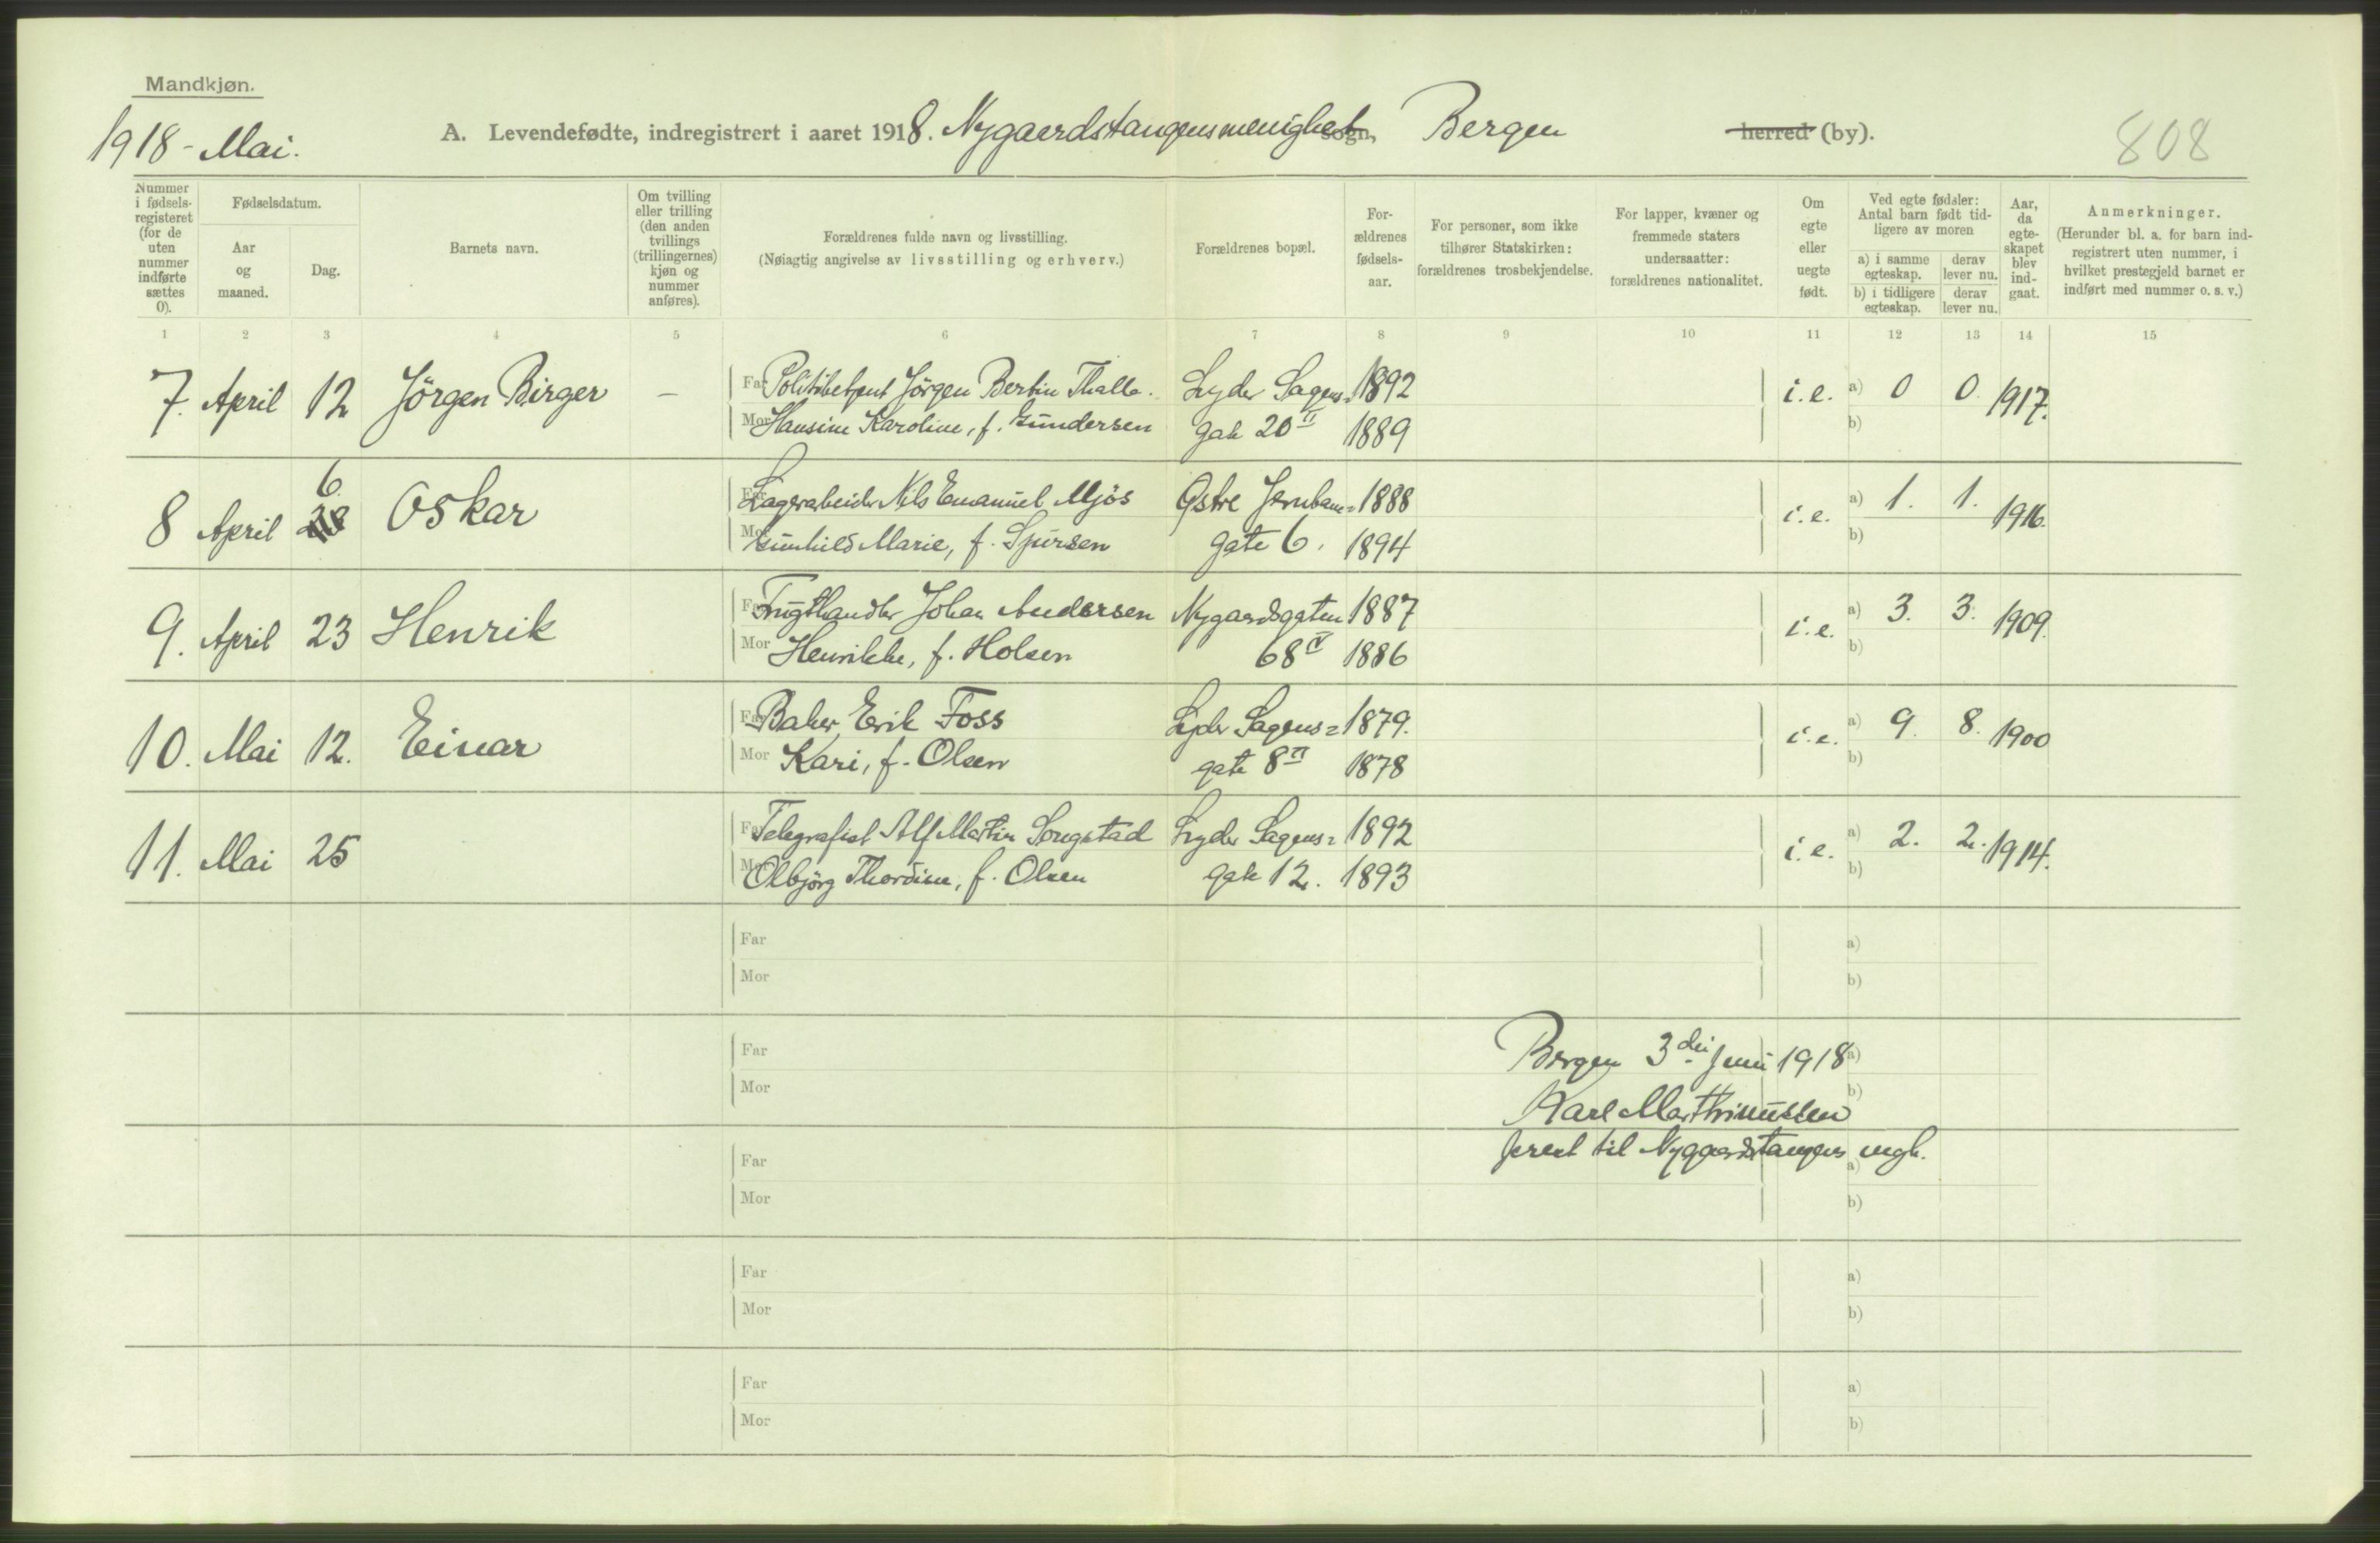 Mandkjøn.
1918 - Mai.
A. Levendefødte, indregistrert i aaret 1918. Nygaardstangens menighet sogn, Bergen herred (by).
808
Nummer i fødselsregisteret (for de uten nummer indførte sættes 0).
Fødselsdatum.
Aar og maaned.
Dag.
Barnets navn.
Om tvilling eller trilling (den anden tvillings (trillingernes) kjøn og nummer anføres).
Forældrenes fulde navn og livsstilling.
(Nøiagtig angivelse av livsstilling og erhverv.)
Forældrenes bopæl.
Forældrenes fødselsaar.
For personer, som ikke tilhører Statskirken: forældrenes trosbekjendelse.
For lapper, kvæner og fremmede staters undersaatter: forældrenes nationalitet.
Om egte eller uegte født.
Ved egte fødsler: Antal barn født tidligere av moren
a) i samme egteskap.
derav lever nu.
b) i tidligere egteskap.
derav lever nu.
Aar, da egteskapet blev indgaat.
Anmerkninger.
(Herunder bl. a. for barn indregistrert uten nummer, i hvilket prestegjeld barnet er indført med nummer o. s. v.)
1 2 3 4 5 6 7 8 9 10 11 12 13 14 15
7. April 12 Jörgen Birger — Far Politibetjent Jörgen Bertin Thalle. Lyder Sagens- 1892 i.e. a) 0 0 1917.
Mor Hansine Karoline, f. Gundersen gate 20 II 1889 b)
8 April 28 6. Oskar Far Lagerarbeider Nils Emanuel Mjös Östre Jernbane= 1888 i.e. a) 1. 1. 1916.
Mor Gunhild Marie, f. Sjursen gate 6. 1894 b)
9. April 23 Henrik Far Frugthandler Johan Andersen Nygaardsgaten 1887 i.e. a) 3. 3. 1909.
Mor Henrikke, f. Holsen 68 IV 1886 b)
10. Mai 12. Einar Far Baker Erik Foss Lyder Sagens= 1879. i.e. a) 9. 8. 1900
Mor Kari, f. Olsen gate 8 II 1878 b)
11. Mai 25 Far Telegrafist Alf Martin Songstad Lyder Sagens= 1892 i.e. a) 2. 2. 1914.
Mor Olbjörg Thordine, f. Olsen gate 12. 1893 b)
Far a)
Mor b)
Far Bergen 3die Juni 1918 a)
Mor Karl Marthinussen b)
Far prest til Nygaardstangens mgh. a)
Mor b)
Far a)
Mor b)
Far a)
Mor b)